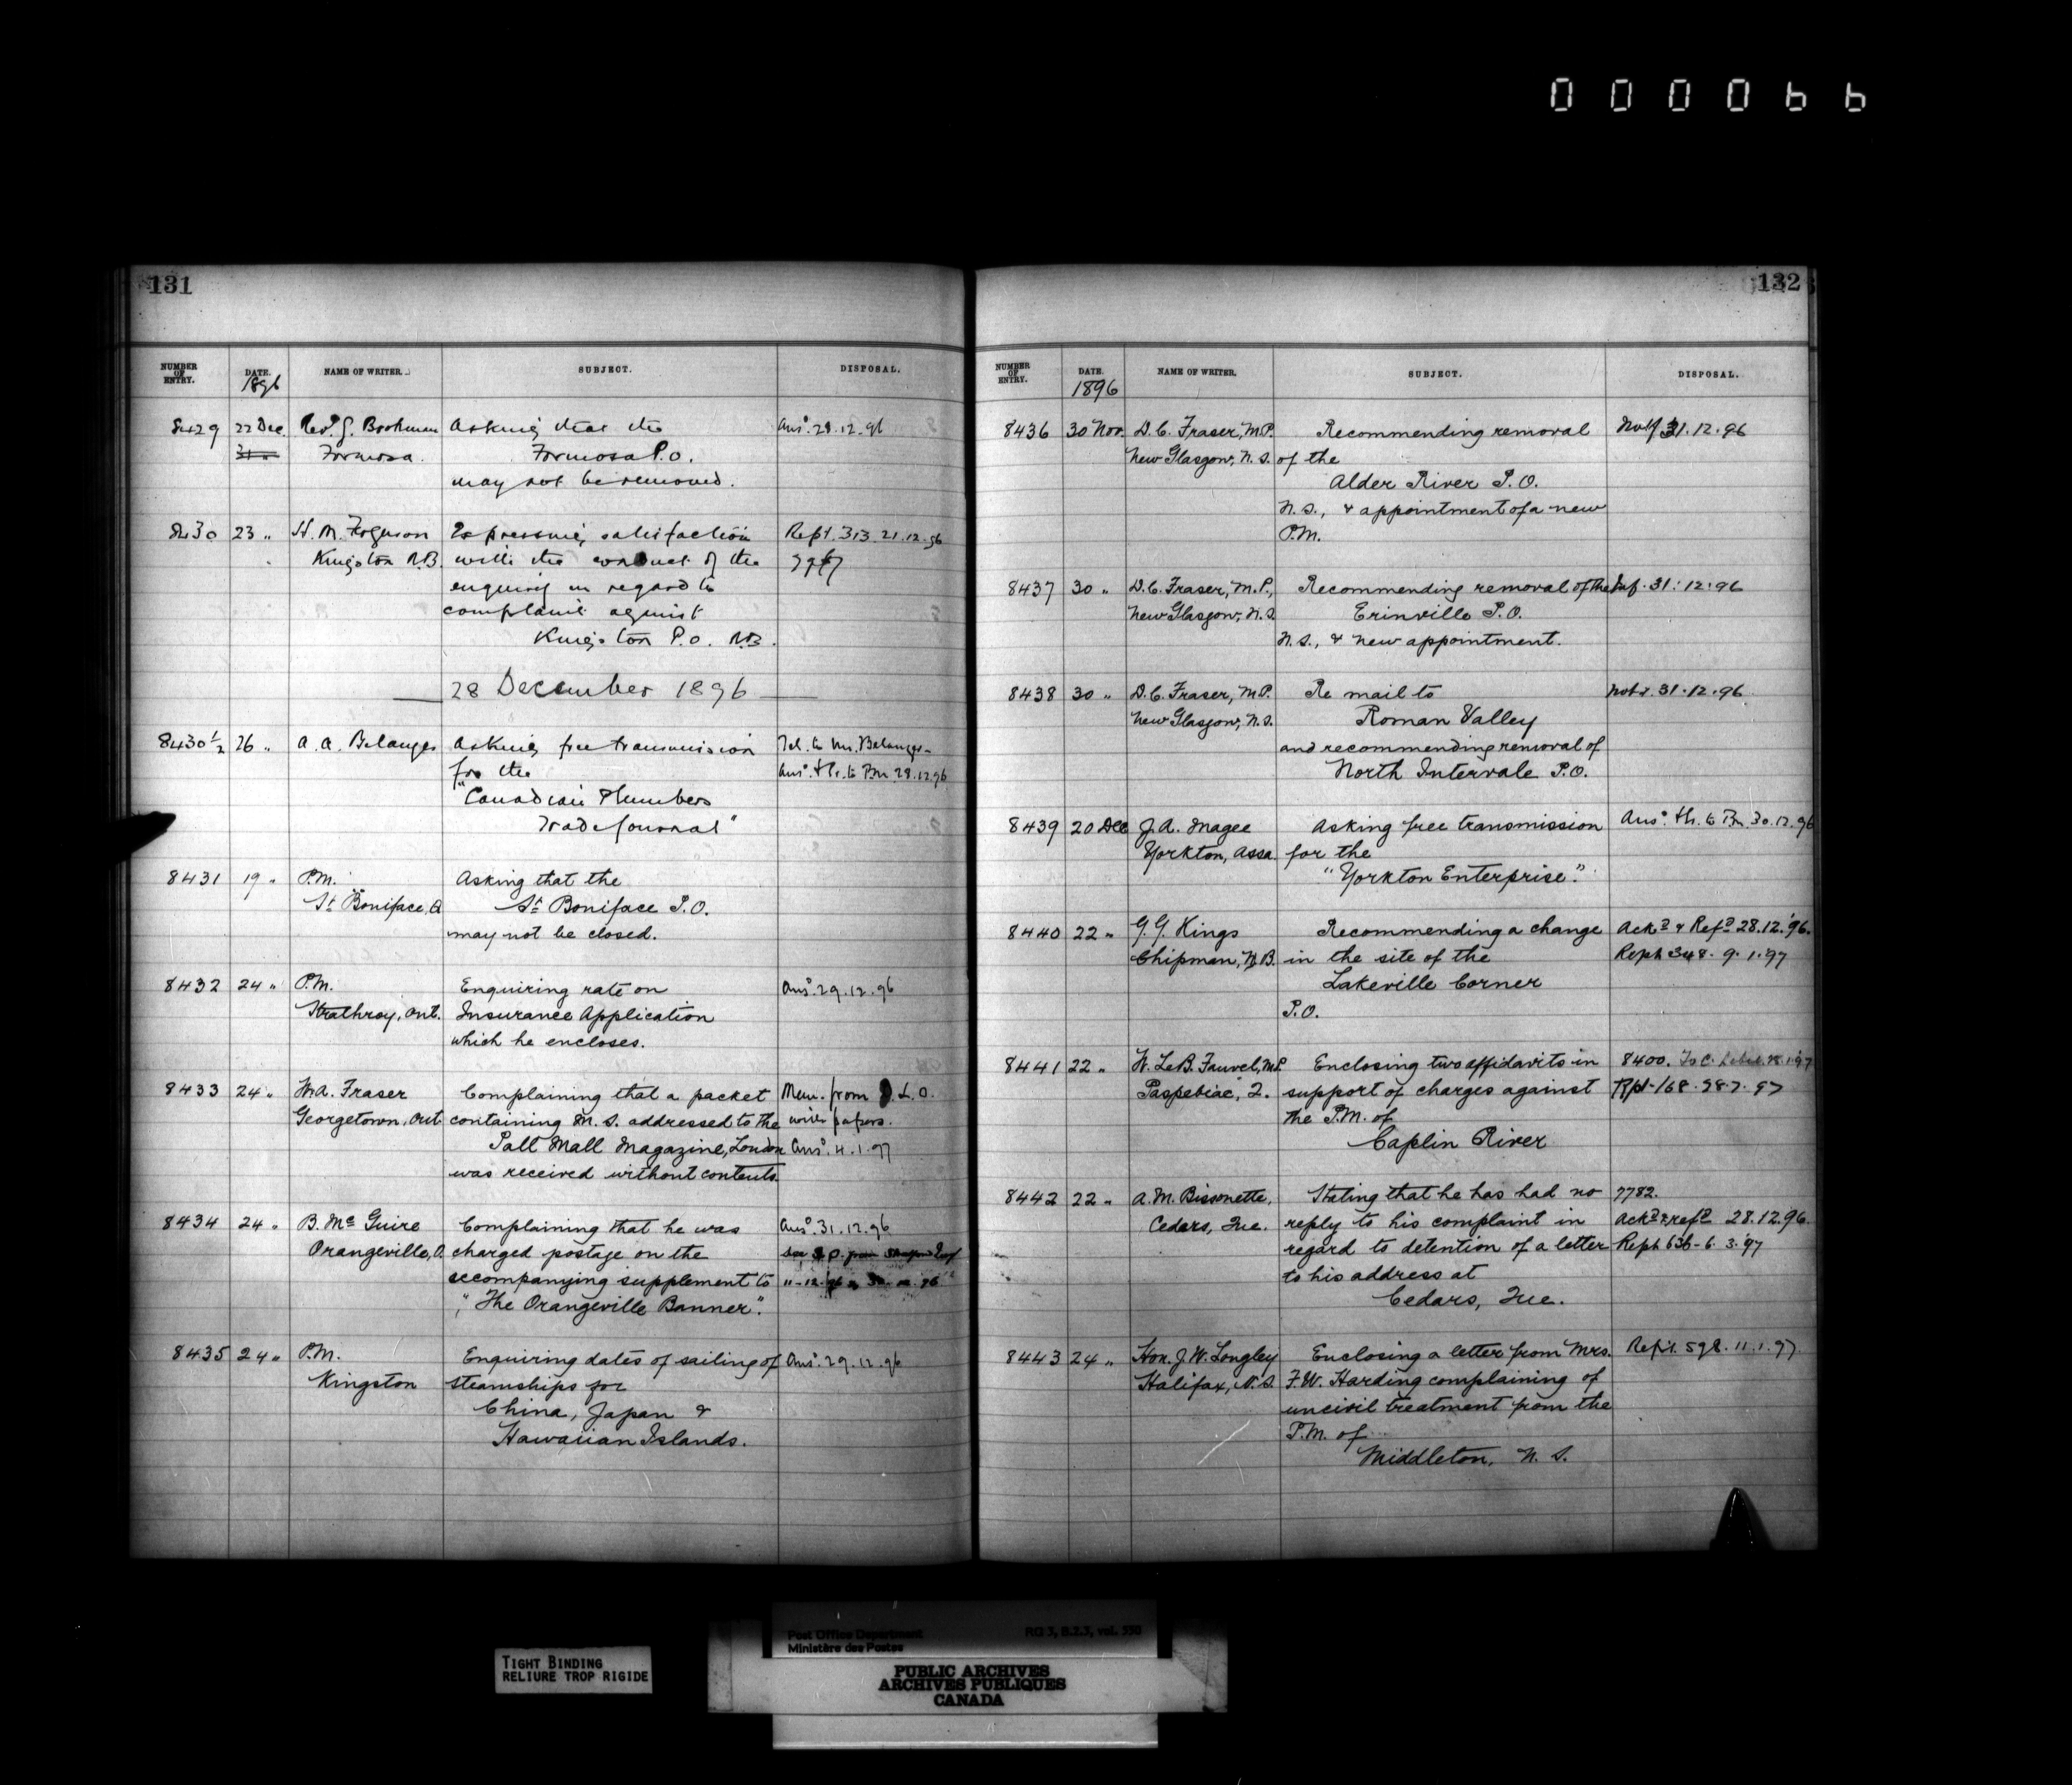 000066
131
NUMBER OF ENTRY. DATE. 1896 NAME OF WRITER. SUBJECT. DISPOSAL.
8429 22 Dec. Revd. J. Asking that the Ansd. 29.12.96
Formosa. Formosa P.O.
may not be removed.
8430 23 " H. M. Ferguson Expressing satisfaction Rept. 313. 21.12.96
Kingston N.B. with the conduct of the
enquiry in regard to
complaint against
Kingston P.O. N.B.
28 December 1896
8430 1/2 26 " A. A. Belanger Asking free transmission Tel. to Mr. Belanger
for the Ansd. + Ir. to P.M. 29.12.96
"Canadian Plumbers
Trade Journal"
8431 19 " P.M. Asking that the
St. Boniface, Q St. Boniface P.O.
may not be closed.
8432 24 " P.M. Enquiring rate on Ansd. 29.12.96
Strathroy, Ont. Insurance Application
which he encloses.
8433 24 " W.A. Fraser Complaining that a packet Mem. from D.L.O.
Georgetown, Ont containing M.S. addressed to the with papers.
Pall Mall Magazine, London Ansd. 4.1.97
was received without contents.
8434 24 " B. McGuire Complaining that he was Ansd. 31.12.96
Orangeville, O. charged postage on the
accompanying supplement to
"The Orangeville Banner".
8435 24 " P.M. Enquiring dates of sailing of Ansd. 29.12.96
Kingston steamships for
China, Japan &
Hawaiian Islands.
132
NUMBER OF ENTRY. DATE. 1896 NAME OF WRITER. SUBJECT. DISPOSAL.
8436 30 Nov. D.C. Fraser, M.P. Recommending removal 31.12.96
New Glasgow, N.S. of the
Alder River P.O.
N.S., & appointment of a new
P.M.
8437 30 " D.C. Fraser, M.P., Recommending removal of the 31.12.96
New Glasgow, N.S. Erinville P.O.
N.S., & new appointment.
8438 30 " D.C. Fraser, M.P. Re mail to 31.12.96
New Glasgow, N.S. Roman Valley
and recommending removal of
North Intervale P.O.
8439 20 Dec J.A. Magee Asking free transmission Ansd. + Ir. to P.M. 30.12.96
Yorkton, Assa. for the
"Yorkton Enterprise."
8440 22 " G.G. Kings Recommending a change Ackd. & Refd. 28.12.'96.
Chipman, N.B. in the site of the Rept. 348. 9.1.97
Lakeville Corner
P.O.
8441 22 " W. LeB. Fauvel, M.P. Enclosing two affidavits in 8400.
Paspebiac, Q. support of charges against Rpt. 168. 28.7.97
the P.M. of
Caplin River
8442 22 " A.M. Bissonette, Stating that he has had no 7782.
Cedars, Que. reply to his complaint in Ackd. & refd. 28.12.96.
regard to detention of a letter Rept. 636 - 6.3.'97
to his address at
Cedars, Que.
8443 24 " Hon. J.W. Longley Enclosing a letter from Mrs. Rept. 598. 11.1.97.
Halifax, N.S. F.W. Harding complaining of
uncivil treatment from the
P.M. of
Middleton, N.S.
TIGHT BINDING
RELIURE TROP RIGIDE
Post Office Department RG 3, B.2.3, vol. 550
Ministère des Postes
PUBLIC ARCHIVES
ARCHIVES PUBLIQUES
CANADA